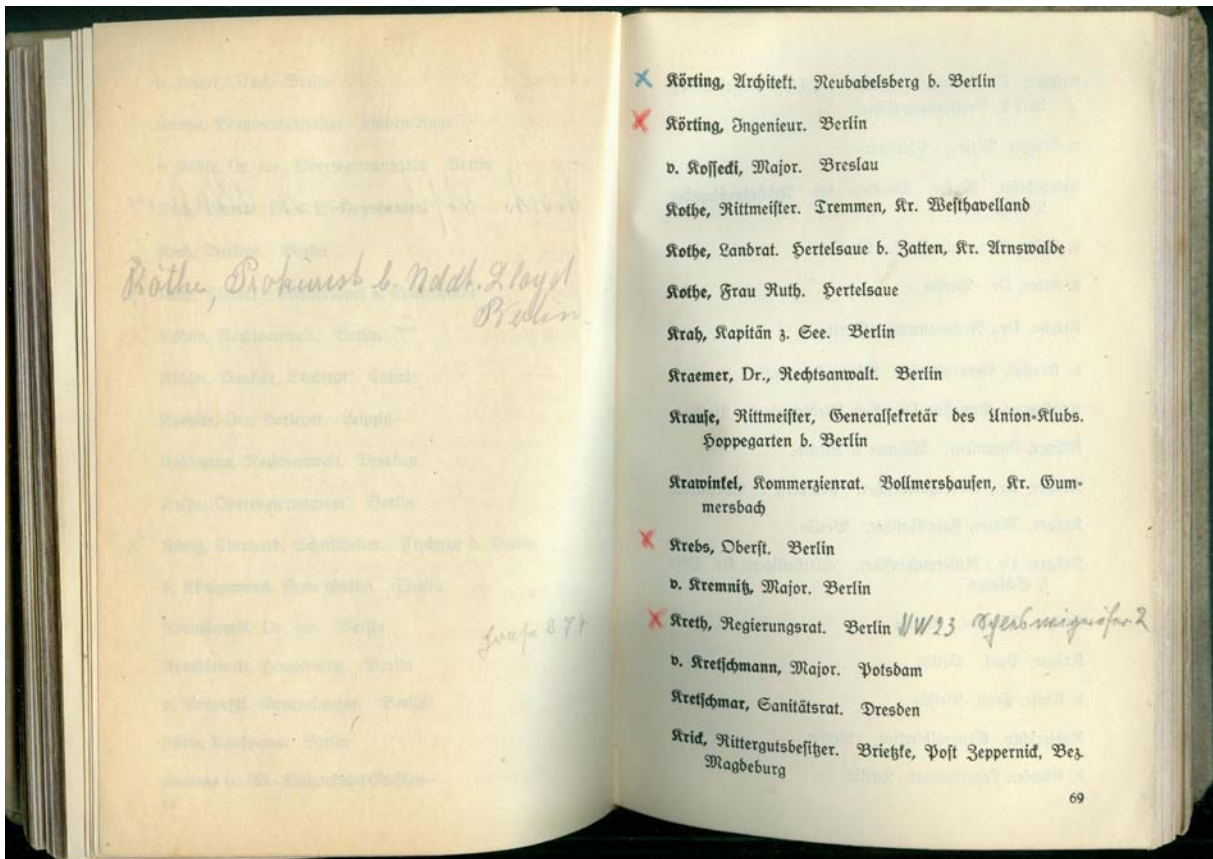 Köthe, Prokurist b. Nddt. Lloyd
Berlin
Körting, Architekt. Neubabelsberg b. Berlin
Körting, Ingenieur. Berlin
v. Kossecki, Major. Breslau
Kothe, Rittmeister. Tremmen, Kr. Westhavelland
Kothe, Landrat. Hertelsaue b. Zatten, Kr. Arnswalde
Kothe, Frau Ruth. Hertelsaue
Krah, Kapitän z. See. Berlin
Kraemer, Dr., Rechtsanwalt. Berlin
Krause, Rittmeister, Generalsekretär des Union-Klubs.
Hoppegarten b. Berlin
Krawinkel, Kommerzienrat. Vollmershausen, Kr. Gum-
mersbach
Krebs, Oberst. Berlin
v. Kremnitz, Major. Berlin
Kreth, Regierungsrat. Berlin NW23
v. Kretschmann, Major. Potsdam
Kretschmar, Sanitätsrat. Dresden
Krick, Rittergutsbesitzer. Brietzke, Post Zeppernick, Bez.
Magdeburg
69